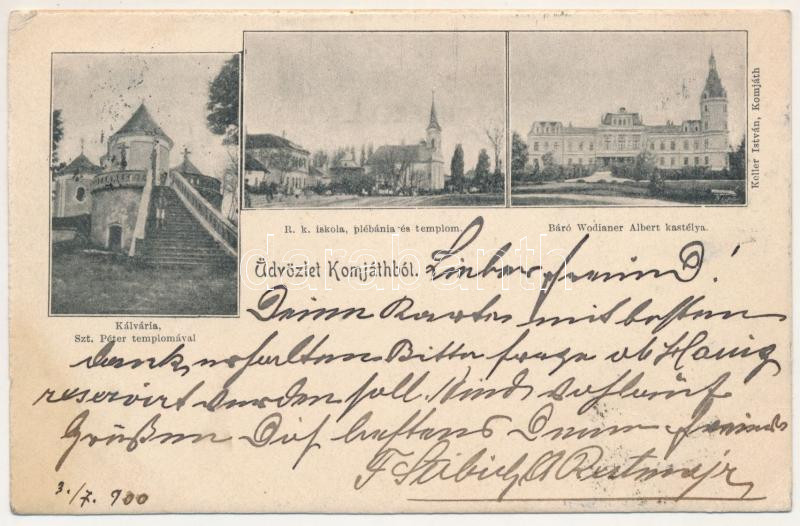 R. k. iskola, plébánia és templom.
Báró Wodianer Albert kastélya.
Keller István, Komjáth
Kálvária,
Szt. Péter templomával
Üdvözlet Komjáthból.
Lieber Freund!
Deine Karte mit besten
dank erhalten Bitte frage ob
reservirt werden soll.
Grüßen Dich bestens Deine Freunde
3./7. 900
darabanth